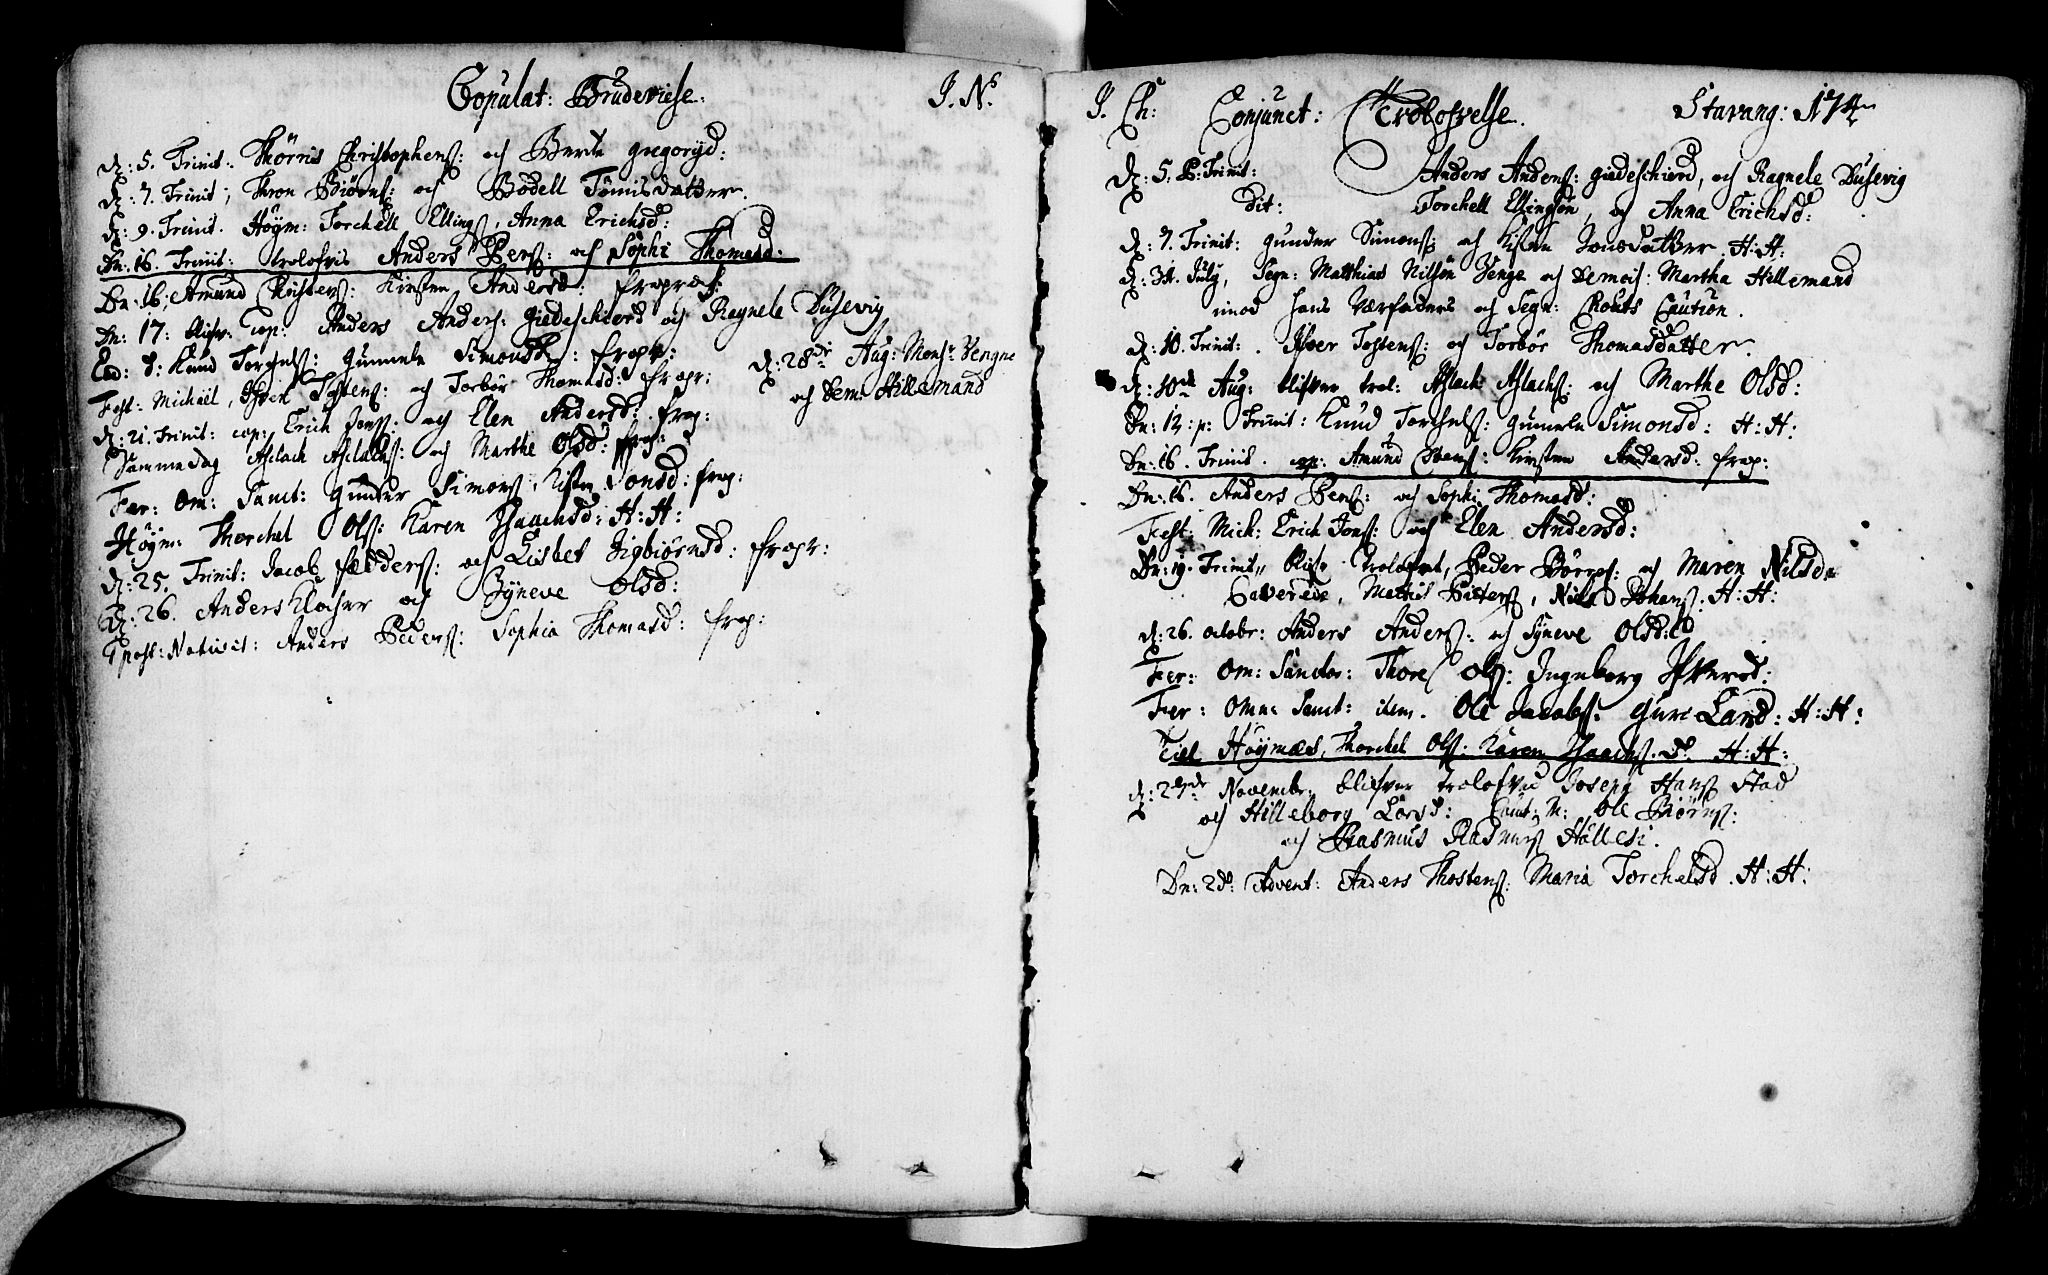 Copulat: Brudeviese. J. N.
d: 5. Trinit: Thørris Christophers: och Berte gregorijd:
d: 7. Trinit; Thron Biørns: och Bodell Tømisdatter.
d: 9. Trinit. Høym: Torchell Ellings, Anna Erichsd:
Dn: 16. Trinit: trolofvis Anders Pers: och Sophi Thomasd.
Dn: 16; Amund Christens: Kirsten Andersd:
Dn: 17: blifv: cop: Anders Anders: giedeschierd och Ragnele Dusevig
Eod: d: Knud Torchels: gunnele Simonsd: fropr:
d: 28de Aug: Monsr Vengne
och Dem: Hillemand
Fest: Michaël, Ifver Tostens: och Torbør Thomasd: fropr:
d: 21. Trinit: cop:, Erich Jons: och Elen Andersd: frop:
Sammedag Aslach Aslachs: och Marthe Olsd: frop:
Fer: Om: Sanct: gunder Simons, Kisten Jonsd: frop:
Høym: Thorchel Ols: Karen Isaachsd: H: H:
d: 25. Trinit: Jacob Fedders: och Lisbet Sigbiørnsd: fropr:
d: 26. Anders Klocher och Syneve Olsd:
post: Nativit: Anders Peders: Sophia Thomasd: frop:
J. Ch: Conjunct: Trolofvelse. Stavang: 174
d: 5. P: Trinit: Anders Anders: giedeschierd, och Ragnele Dusevig
dit: Torchell Ellingsøn, og Anna Erichsd:
d: 7. Trinit: gunder Simons: och Kisten Jonsdatter H: H:
d: 31. July, Segn: Matthias Nilsøn Venge och Demois: Martha Hellemand
imod hans Værfaders och Segn: Caution.
d: 10. Trinit: Ifver Tostens: og Torbør Thomasdatter.
d: 10de Aug: blifver trol: Aslach Aslachs: och Marthe Olsd:
Dn: 12: p: Trinit: Knud Torchels: gunnele Simonsd: H: H:
Dn: 16. Trinit. cop: Amund Kirsten Andersd: frop:
Dn: 16. Anders Pers: och Sophi Thomasd:
Fest: Mich: Erich Jons: och Elen Andersd:
Dn: 19. Trinit, blifv trolofvet, Peder Børres: och Maren Nilsd
, Nils Johans: H: H:
d: 26. octobr: Anders Anders: och Syneve Olsd:
Fer: Om: Sanctor: Thores Ols: Ingeborg Ifversd:
Fer: Omn: Sanct: item. Ole Jacobs: Guri Larsd: H: H:
Høymes, Thorchel Ols: Karen Isaachs. D: H: H:
d: 27de Novembr: blifver trolofvet Joseph Hans Stad
och Hilleborg Larsd: Caut: M: Ole Biørns:
och Rasmus Rasmus Hallesi.
Dn: 2d: Advent: Anders Thostens: Maria Torchelsd. H: H: